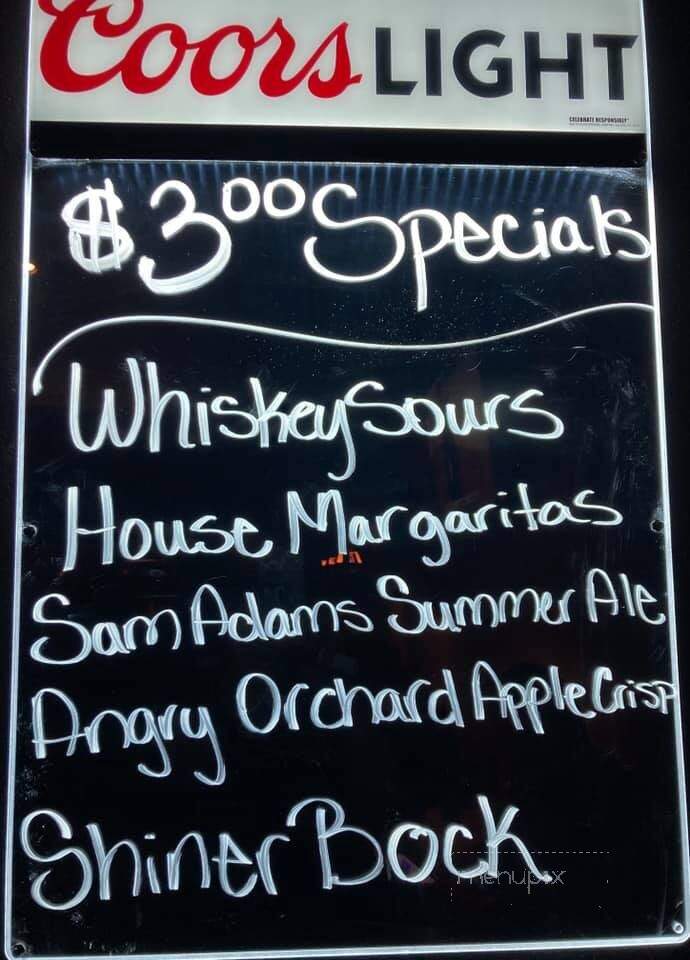 Coors LIGHT
CELEBRATE RESPONSIBLY®
$3⁰⁰ Specials
Whiskey Sours
House Margaritas
Sam Adams Summer Ale
Angry Orchard Apple Crisp
Shiner Bock
menupix